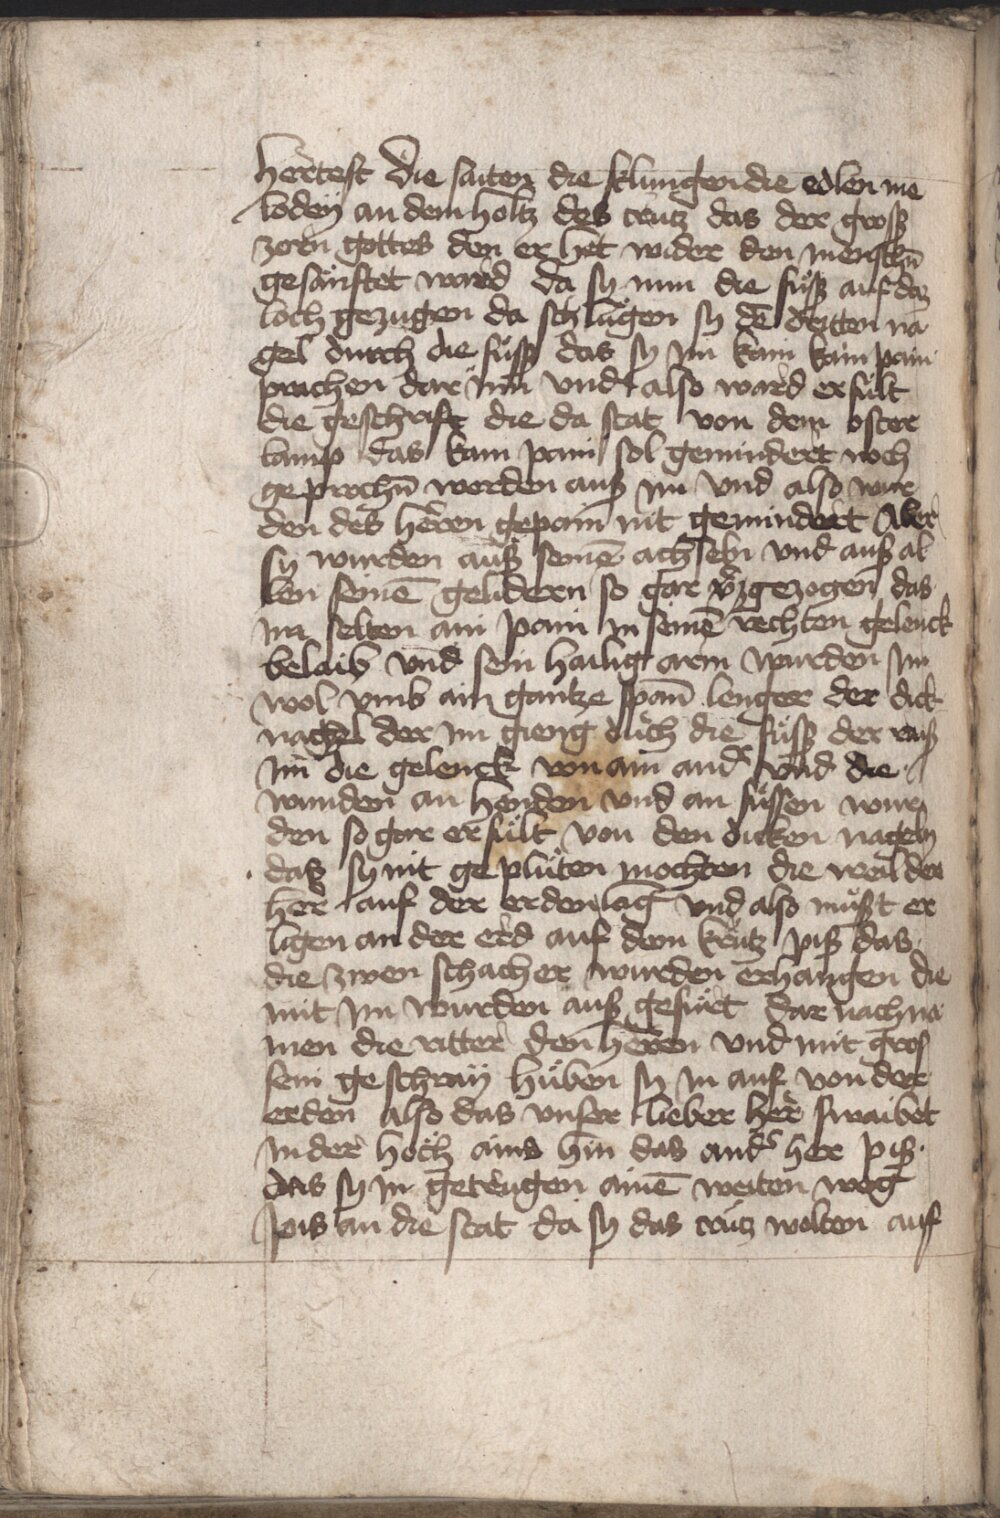 hertest Die saiten die klungen die edlen me
lodey an dem holtz des creutz das der groß
zoren gottes den er het wider den menschn̄
gesänftet ward Da sy nun die füß auf daz
loch gezugen da schlůgen sy dē dritten na
gel durch die füß das sy im kain kain pain
prachen dar jnn vnd also ward erfült
die geschrift die da stat von dem oster
lamp das kain pain sol gemindert noch
geprochn̄ werden auß im vnd also wur
den des heren gepain nit gemindert Aber
sy wurden auß seinē achseln vnd auß al
len seinē gelidern so gar v̄zgezogen das
im selten ain pain in seinē rechten gelenck
belaib vnd sein hailig arm wurden im
wol vmb ain gantze span̄ lenger der dick
nagel der im gieng durch die füß der raiß
im die gelenck von ain and̄ vnd die
wunden an henden vnd an füssen wur
den so gar erfült von den dicken nageln
das sy nit geplüten mochten die weil der
her auf der erden lag vnd also můst er
ligen an der erd auf dem kreutz piß das
die zwen schacher wurden erhangen die
mit im wurden auß gefürt dar nach na
men die ritter den heren vnd mit gros
sem geschray hůben sy in auf von der
erden also das vnser lieber her swaibet
in der höch ains hin das and̄ her piß
das sy in getrugen ainē weiten weg
pis an die stat da sy das creutz wolten auf